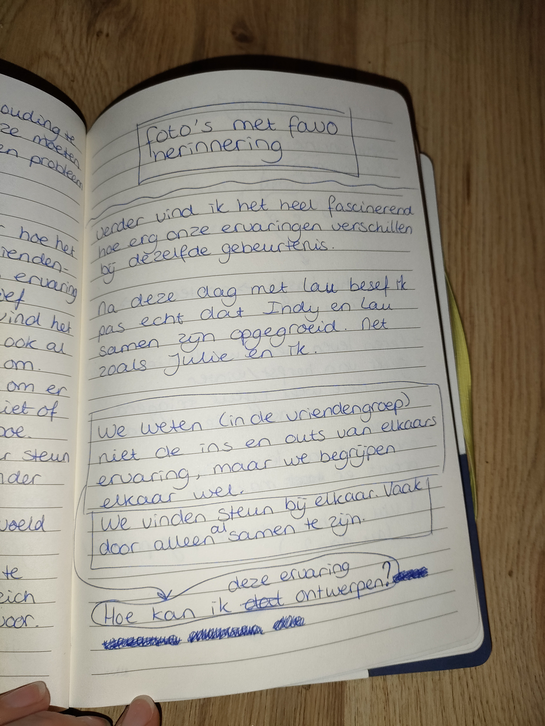 ouding te
ze moeten
en problee
hoe het
ienden-
ervaring
ief
vind het
ook al
om.
om er
iet of
oe.
r steun
nder
voeld
te
eich
voor.
foto's met favo
herinnering
verder vind ik het heel fascinerend
hoe erg onze ervaringen verschillen
bij dezelfde gebeurtenis.
Na deze dag met Lau besef ik
pas echt dat Indy en Lau
samen zijn opgegroeid. Net
zoals Julie en ik.
We weten (in de vriendengroep)
niet de ins en outs van elkaars
ervaring, maar we begrijpen
elkaar wel.
We vinden steun bij elkaar. Vaak
door alleen al samen te zijn.
deze ervaring
Hoe kan ik dat ontwerpen?